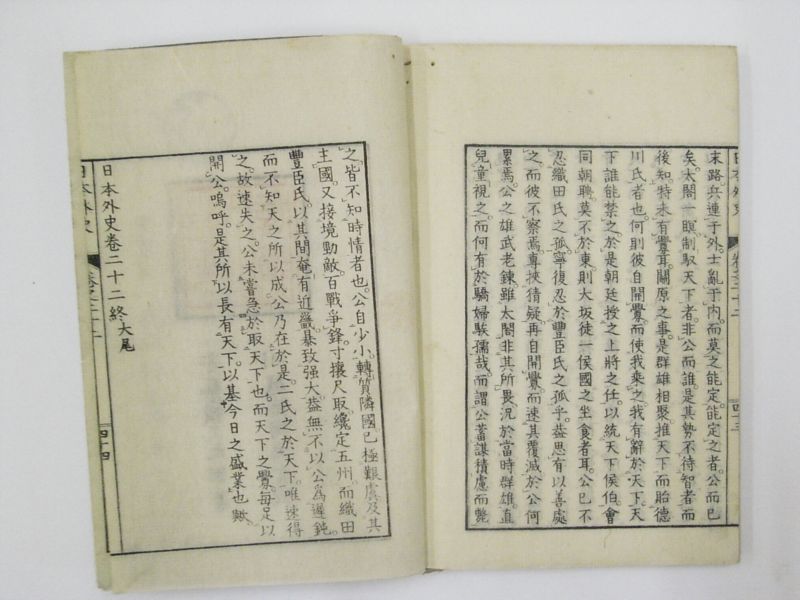 日本外史
卷之二十二
四十三
末路兵連于外。士亂于内。而莫之能定。能定之者。公而已
矣。太閤一瞑。制馭天下者。非公而誰。是其勢不待智者而
後知。特未有釁耳。關原之事。是群雄相聚。推天下而貽德
川氏者也。何則彼自開釁。而使我乘之。我有辭於天下。天
下誰能禁之。於是朝廷授之上將之任。以統天下侯伯。會
同朝聘。莫不於東。則大坂徒一侯國之坐食者耳。公已不
忍織田氏之孤。寧復忍於豐臣氏之孤乎。葢思有以善處
之。而彼不察焉。專挾猜疑。再自開釁。而速其覆滅。於公何
累焉。公之雄武老鍊。雖太閤非其所畏。況於當時群雄。直
兒童視之。而何有於驕婦騃孺哉。而謂公蓄謀積慮而斃
之。皆不知時情者也。公自少小。轉質隣國。已極艱虞。及其
主國。又接境勁敵。百戰爭鋒。寸攘尺取。纔定五州。而織田
豐臣氏。以其間奄有近畿。暴致强大。葢無不以公爲遲鈍。
而不知天之所以成公。乃在於是。二氏之於天下。唯速得
之。故速失之。公未嘗急於取天下也。而天下之釁。每足以
開公。嗚呼。是其所以長有天下。以基今日之盛業也歟。
日本外史卷二十二終 大尾
日本外史
卷之二十二
四十四